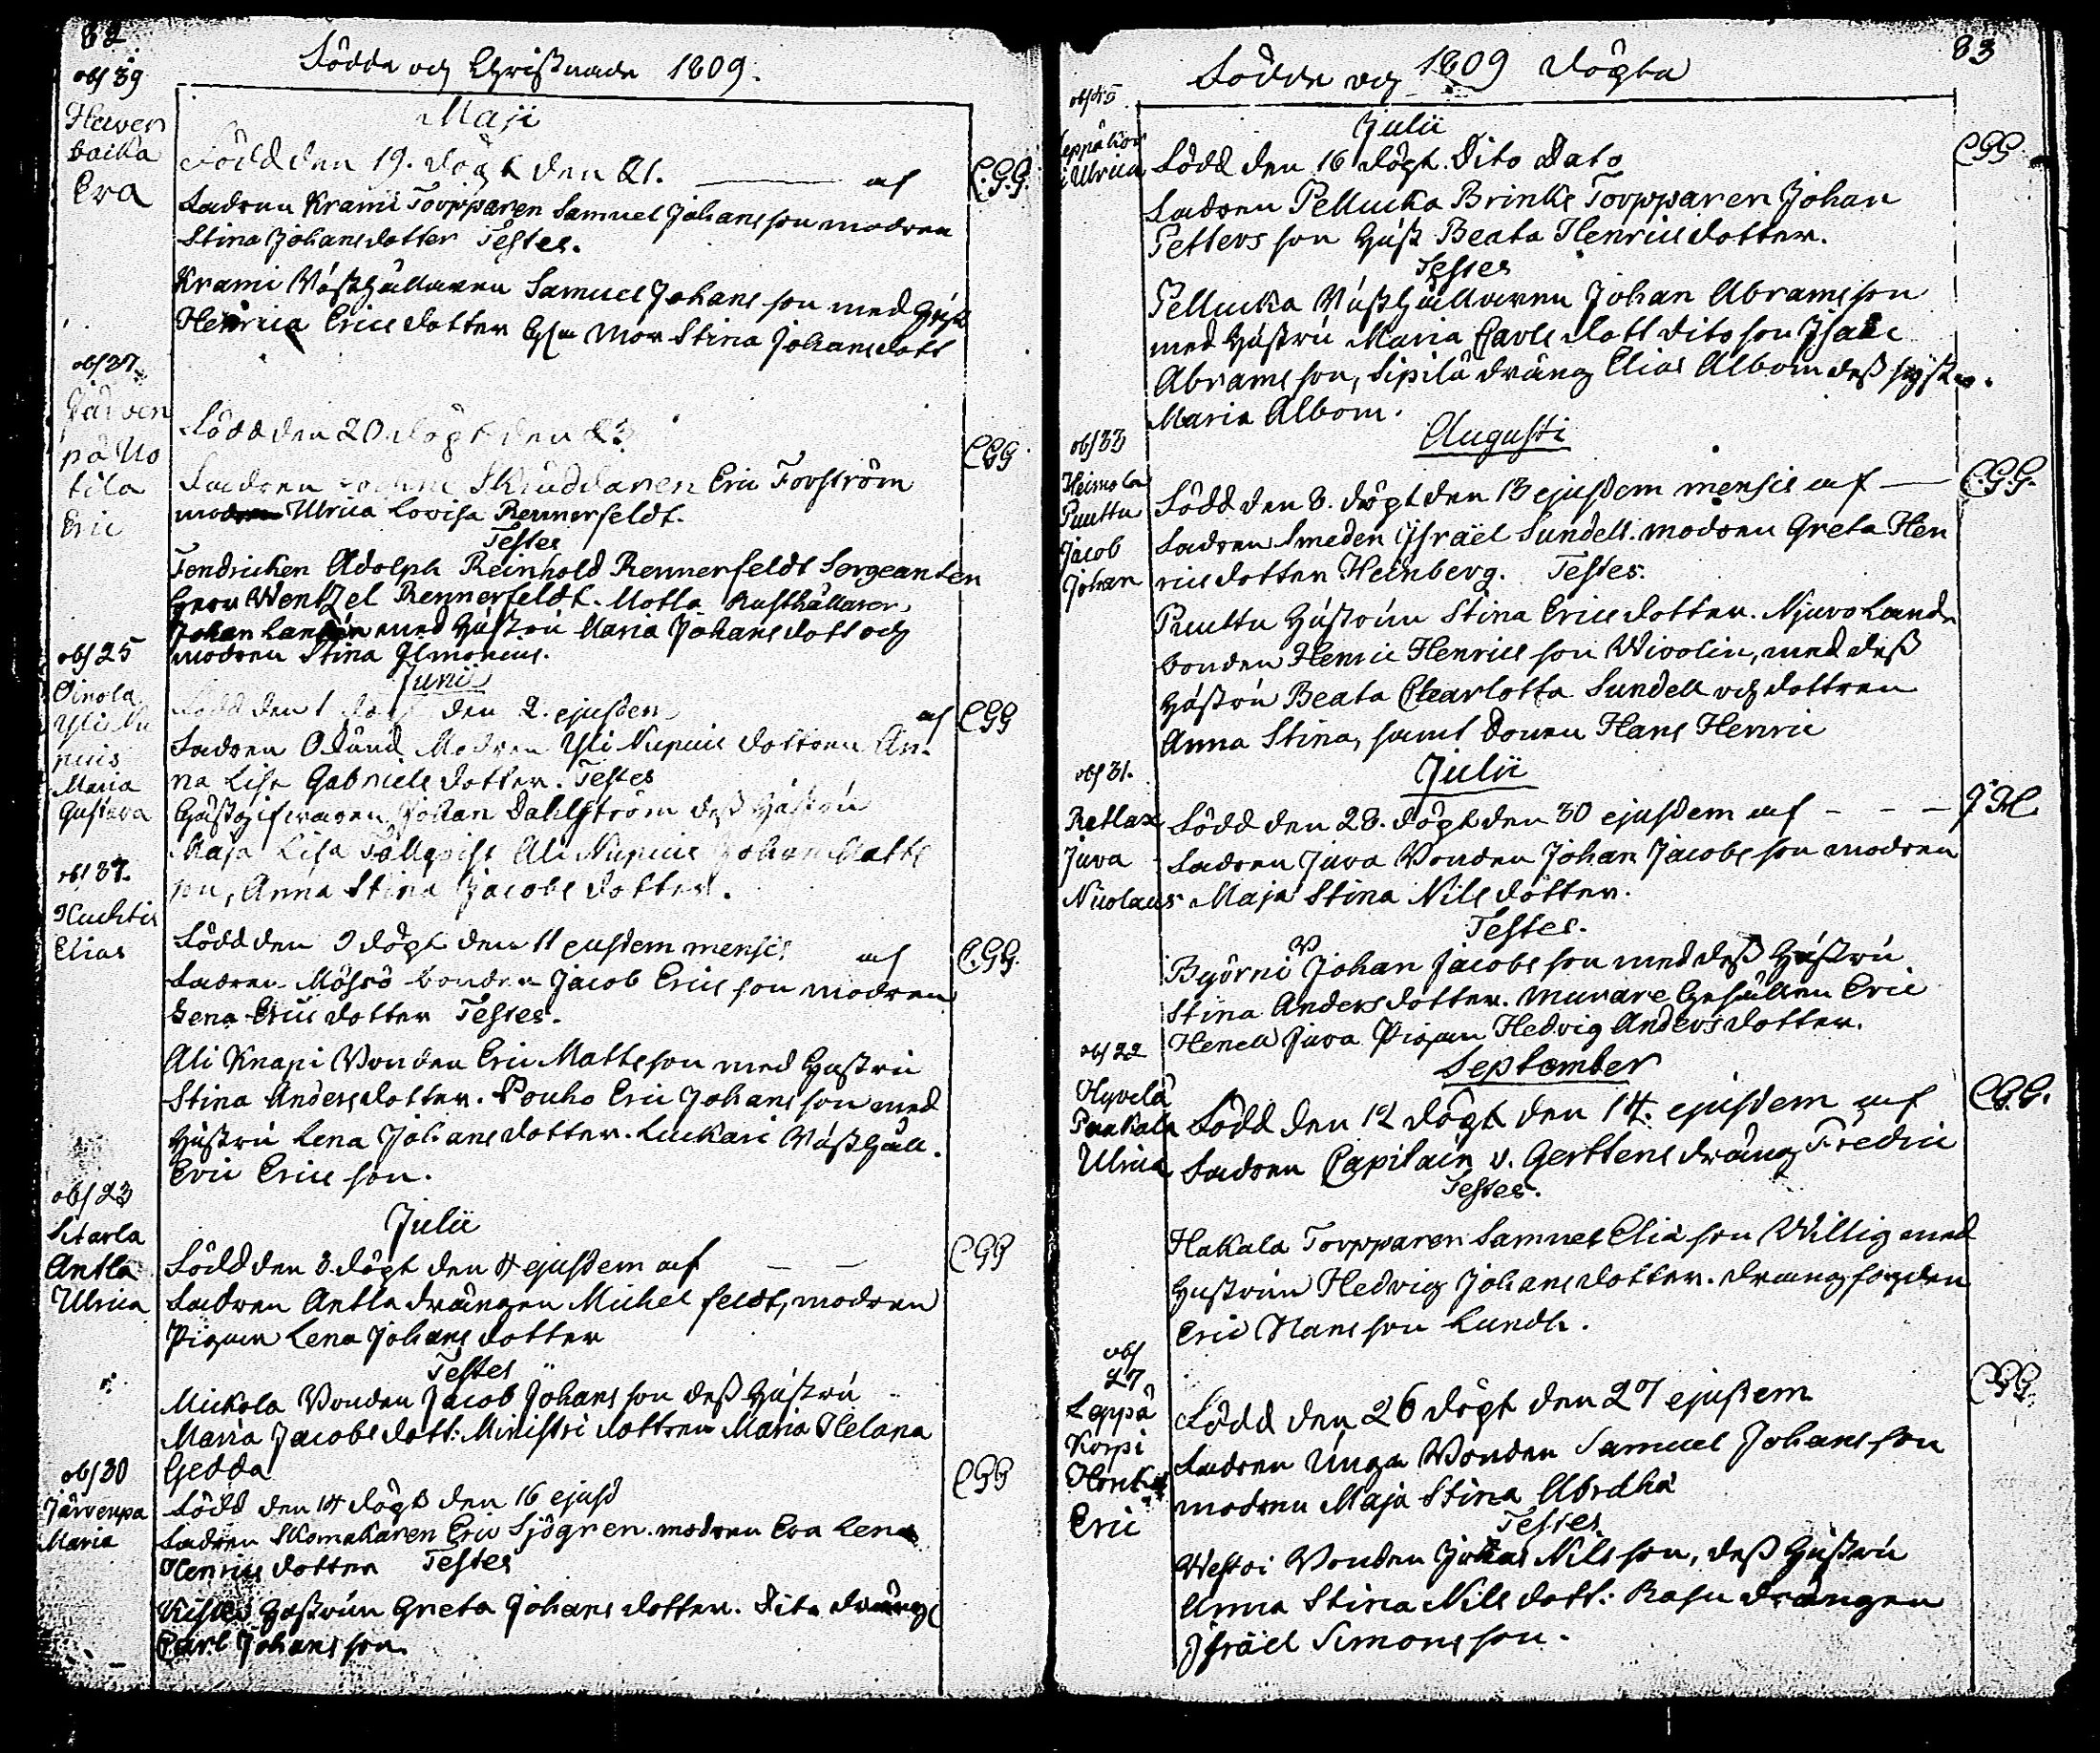 82
Födde och Christnade 1809.
obs 39
Maji
Eva
Född den 19. döpt den 21. af
C.G.G.
Fadren Krami Torpparen Samuel Johansson modren
Stina Johansdotter Testes.
Krami Rusthållaren Samuel Johansson med Hust
Henrica Ericsdotter Mor Stina Johansdott
obs 37
på
Eric
Född den 20 döpt den 23
CGG
Fadren Skräddaren Eric Forström
modren Ulrica Lovisa Rennerfeldt.
Testes
Fendricken Adolph Reinhold Rennerfeldt Sergeanten
Herr Wentzel Rennerfeldt. Motla Rusthållaren
Johan med Hustru Maria Johansdott och
modren Stina
obs 25
Junii
Maria
Gustava
Född den 1 döpt den 2. ejusdem af
CGG
Fadren Okänd Modren Yli Nupuis dottren An-
na Lisa Gabrielsdotter. Testes
Gästgifvaren Johan Dahlström dess Hustru
Maja Lisa Tällqvist Ali Nupuis Johan Matts
son, Anna Stina Jacobsdotter.
obs 37.
Huchtis
Elias
Född den 9 döpt den 11 eusdem mensis af
C.G.G.
Fadren bonden Jacob Ericsson modren
Lena Ericsdotter Testes.
Ali Knapi Bonden Eric Mattsson med Hustru
Stina Andersdotter. Pouho Eric Johansson med
Hustru Lena Johansdotter. Luckari Rusthåll.
Eric Ericsson.
obs 23
Antla
Ulrica
Julii
Född den 3. döpt den 4 ejusdem af
CGG
Fadren Antla drängen Michel Feldt, modren
Pigan Lena Johansdotter
Testes
Mickola Bonden Jacob Johansson dess Hustru
Maria Jacobsdott: Ministri dottren Maria Helena
Gedda
obs 30
Järvenpä
Maria
Född den 14 döpt den 16 ejusd
CGG
Fadren Skomakaren Eric Sjögren. modren Eva Lena
Henricsdotter Testes
Hustrun Greta Johansdotter. Dito dräng
Carl Johansson.
83
Födde och 1809 döpta
obs 45
Ulrica
Julii
Född den 16 döpt. Dito Dato
CGG
Fadren Pellucka Brinks Torpparen Johan
Pettersson Hust Beata Henricsdotter.
Testes
Pellucka Rusthållaren Johan Abramsson
med Hustru Maria Carlsdott dito son Isaac
Abramsson, Sipilä dräng Elias Albom dess syster.
Maria Albom.
obs 33
Augusti
Heimola
Puuttu
Jacob
Johan
Född den 8. döpt den 13 ejusdem mensis af
C.G.G.
Fadren Smeden Israël Sundell. modren Greta Hen
ricsdotter Heinberg. Testes.
Puuttu Hustrun Stina Ericsdotter. Njuro Lands
bonden Henric Henricsson Wivolin, med dess
Hustru Beata Charlotta Sundell och dottren
Anna Stina, samt Sonen Hans Henric
obs 31.
Julii
Retlax
Juva
Nicolaus
Född den 28. döpt den 30 ejusdem af
Fadren Juva Bonden Johan Jacobsson modren
Maja Stina Nilsdotter.
Testes.
Björni Johan Jacobsson med dess Hustru
Stina Andersdotter. Murare Gesällen Eric
Henell Juva Pigan Hedvig Andersdotter.
obs 22
September
Hyvelä
Paakala
Ulrica
Född den 12 döpt den 14. ejusdem af
C.G.G.
Fadren Capitain v. Gerttens dräng Fredric
Testes.
Hakala Torpparen Samuel Eliasson Willig med
Hustrun Hedvig Johansdotter. drängfogden
Eric Hansson Lundh.
obs
27
Leppä
Korpi
Eric
Född den 26 döpt den 27 ejusdem
CGG
Fadren Unga Bonden Samuel Johansson
modren Maja Stina Abrahå
Testes
Westoi Bonden Johan Nilsson, dess Hustru
Anna Stina Nilsdott: Rasu drängen
Israël Simonsson.